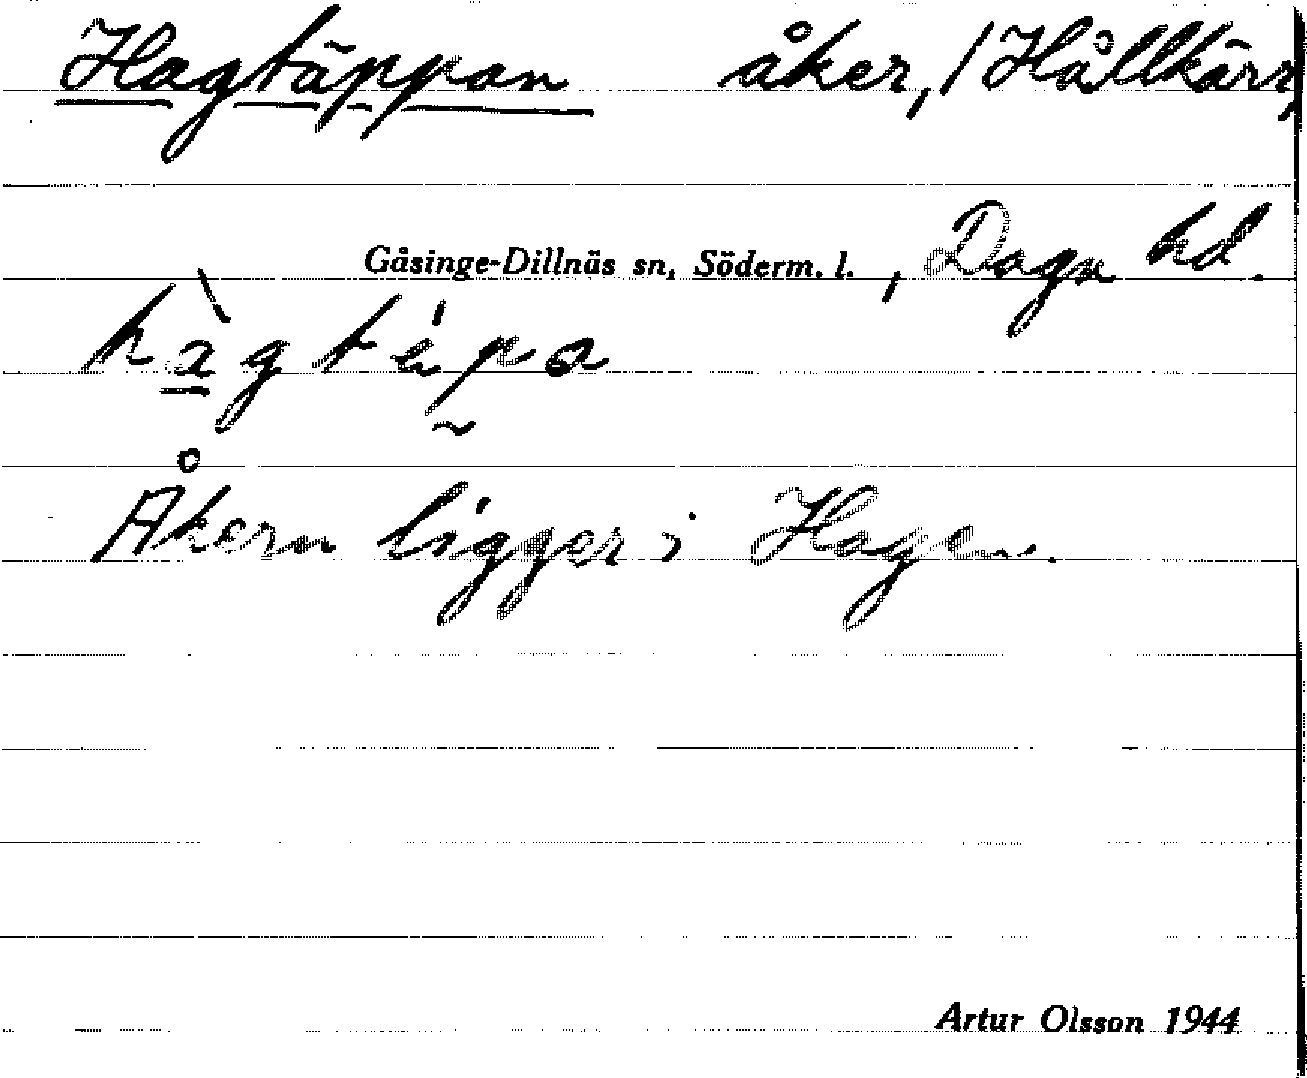 Hagtäppan åker, / Hållkärr,
Gåsinge-Dillnäs sn, Söderm. l., Daga hd.
hàgtɛ́pa
Åkern ligger i Hagen.
Artur Olsson 1944